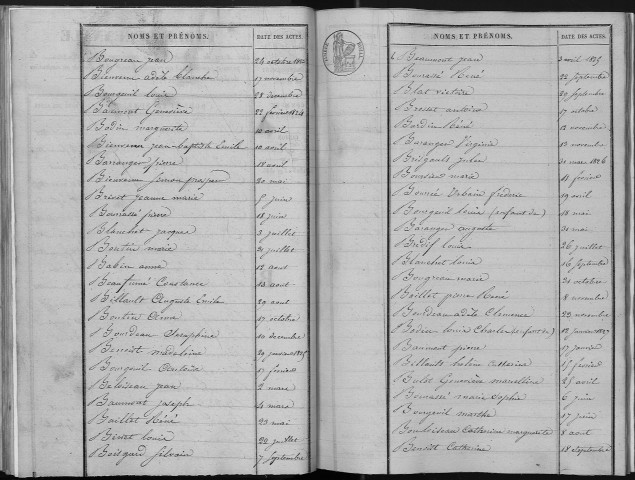 NOMS ET PRÉNOMS. DATE DES ACTES.
Bougreau jean 24 octobre
Bienvenu adèle blanche 17 novembre
Bourgeuil louis 28 decembre
Baumont Geneviève 22 fevrier 1824
Bodin marguerite 10 avril
Bienvenu jean-baptiste Emile 10 avril
Baranger pierre 18 avril
Bienvenu Simon prosper 20 mai
Briset jeanne marie 5 juin
Bourassé pierre 18 juin
Blanchet jacques 3 juillet
Boutin marie 21 juillet
Babin anne 12 aout
Beaufumé Constance 13 aout
Billault Auguste Emile 29 aout
Boutin 17 octobre
Bourdeau Séraphine 10 decembre
Benoist madeleine 29 janvier 1825
Bourgeuil 17 fevrier
jean 2 mars
Baumont joseph 4 mars
Baillet Réné 23 mai
Briset louis 22 juillet
Silvain 7 Septembre
NOMS ET PRÉNOMS. DATE DES ACTES.
Beaumont jean 3 avril 1825
Bourassé Réné 22 Septembre
Blat victoire 29 Septembre
Briset antoine 17 octobre
Bardin Réné 12 novembre
Baranger Virginie 13 novembre
Brizgault julie 31 mars 1826
marie 11 fevrier
Bourée Urbain frédéric 19 avril
Bourgeuil louis (enfant de) 18 mai
Baranger auguste 21 mai
Brédif louis 26 juillet
Blanchet louis 16 Septembre
Bougreau marie 21 octobre
Baillet pierre Réné 8 novembre
Bourdeau adèle Clémence 22 novembre
Bodin louis Charles (enfant de) 12 janvier 1827
Baumont pierre 17 janvier
Billault Catherine 15 fevrier
Bulot Geneviève marcelline 25 avril
Bourassé marie Sophie 6 juin
Bourgeuil marthe 17 juin
Catherine marguerite 8 aout
Benoist Catherine 18 Septembre